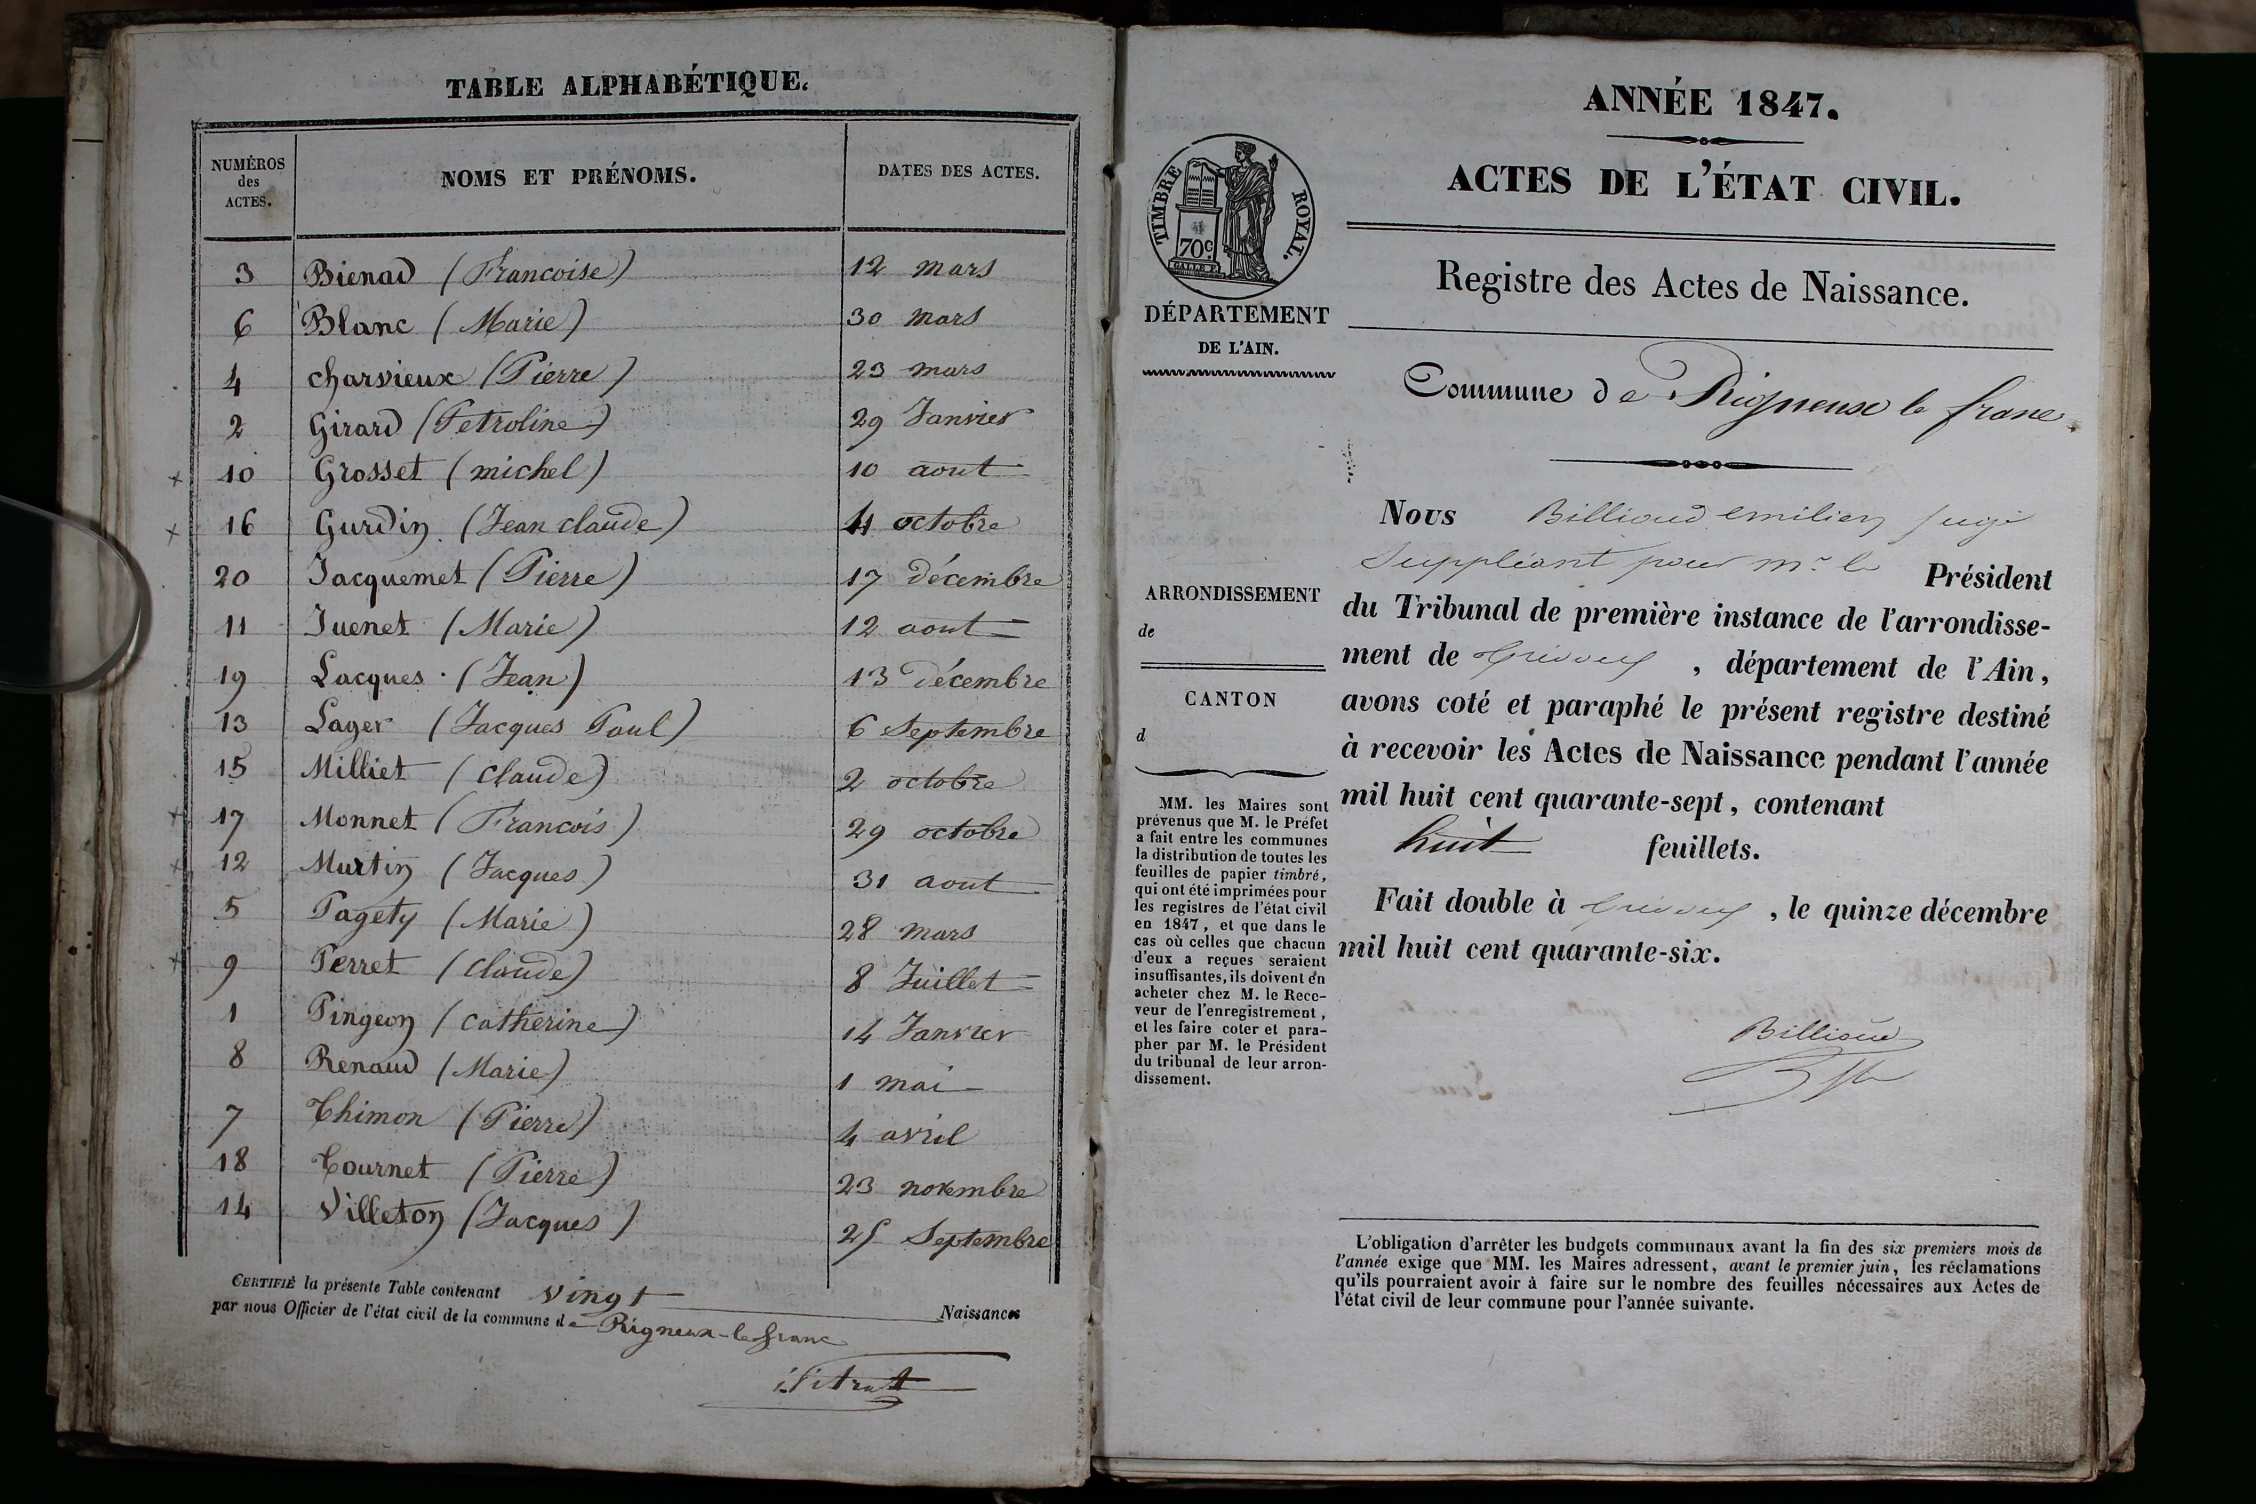 TABLE ALPHABÉTIQUE.
NUMÉROS des ACTES. NOMS ET PRÉNOMS. DATES DES ACTES.
3 Bienad (Francoise) 12 mars
6 Blanc (Marie) 30 mars
4 charvieux (Pierre) 23 mars
2 Girard (Petroline) 29 Janvier
x 10 Grosset (michel) 10 aout
x 16 Gurdin (Jean claude) 4 octobre
20 Jacquemet (Pierre) 17 décembre
11 Juenet (Marie) 12 aout
19 Lacques (Jean) 13 décembre
13 Lager (Jacques Paul) 6 Septembre
15 Milliet (claude) 2 octobre
x 17 Monnet (Francois) 29 octobre
x 12 Murtin (Jacques) 31 aout
5 Pagety (Marie) 28 mars
x 9 Perret (claude) 8 Juillet
1 Pingeon (catherine) 14 Janvier
8 Renaud (Marie) 1 mai
7 Thimon (Pierre) 4 avril
18 Tournet (Pierre) 23 novembre
14 Villeton (Jacques) 25 Septembre
CERTIFIÉ la présente Table contenant vingt Naissances
par nous Officier de l'état civil de la commune de Rigneux-le-franc
ANNÉE 1847.
ACTES DE L'ÉTAT CIVIL.
Registre des Actes de Naissance.
TIMBRE ROYAL.
70c
DÉPARTEMENT
DE L'AIN.
Commune de Rigneux le franc
ARRONDISSEMENT
de
CANTON
d
MM. les Maires sont
prévenus que M. le Préfet
a fait entre les communes
la distribution de toutes les
feuilles de papier timbré,
qui ont été imprimées pour
les registres de l'état civil
en 1847, et que dans le
cas où celles que chacun
d'eux a reçues seraient
insuffisantes, ils doivent en
acheter chez M. le Rece-
veur de l'enregistrement,
et les faire coter et para-
pher par M. le Président
du tribunal de leur arron-
dissement.
Nous Billioud emilien juge
Suppléant pour mr le Président
du Tribunal de première instance de l'arrondisse-
ment de Trévoux, département de l'Ain,
avons coté et paraphé le présent registre destiné
à recevoir les Actes de Naissance pendant l'année
mil huit cent quarante-sept, contenant
huit feuillets.
Fait double à Trévoux, le quinze décembre
mil huit cent quarante-six.
Billioud
L'obligation d'arrêter les budgets communaux avant la fin des six premiers mois de
l'année exige que MM. les Maires adressent, avant le premier juin, les réclamations
qu'ils pourraient avoir à faire sur le nombre des feuilles nécessaires aux Actes de
l'état civil de leur commune pour l'année suivante.